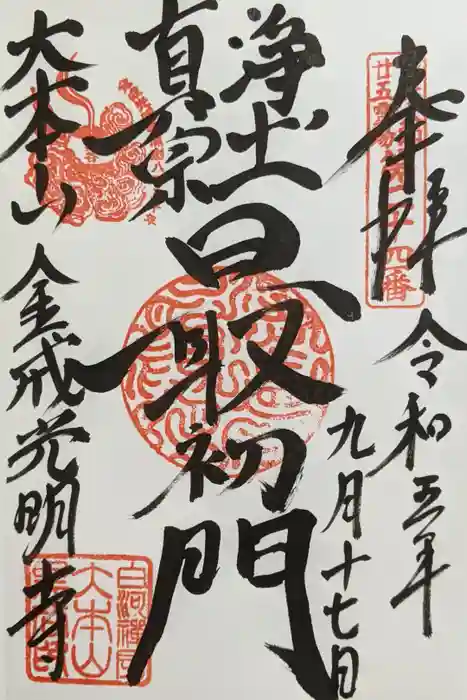 奉拝
令和五年
九月十七日
浄土
真宗
最初門
大本山
金戒光明寺
廿五霊場第二十四番
大本山